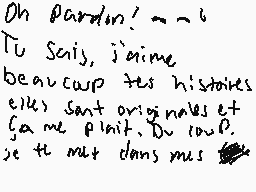 Oh pardon! ^^6
Tu sais, j'aime
beaucoup tes histoires
elles sont originales et
ça me plait. Du coup.
je te met dans mes